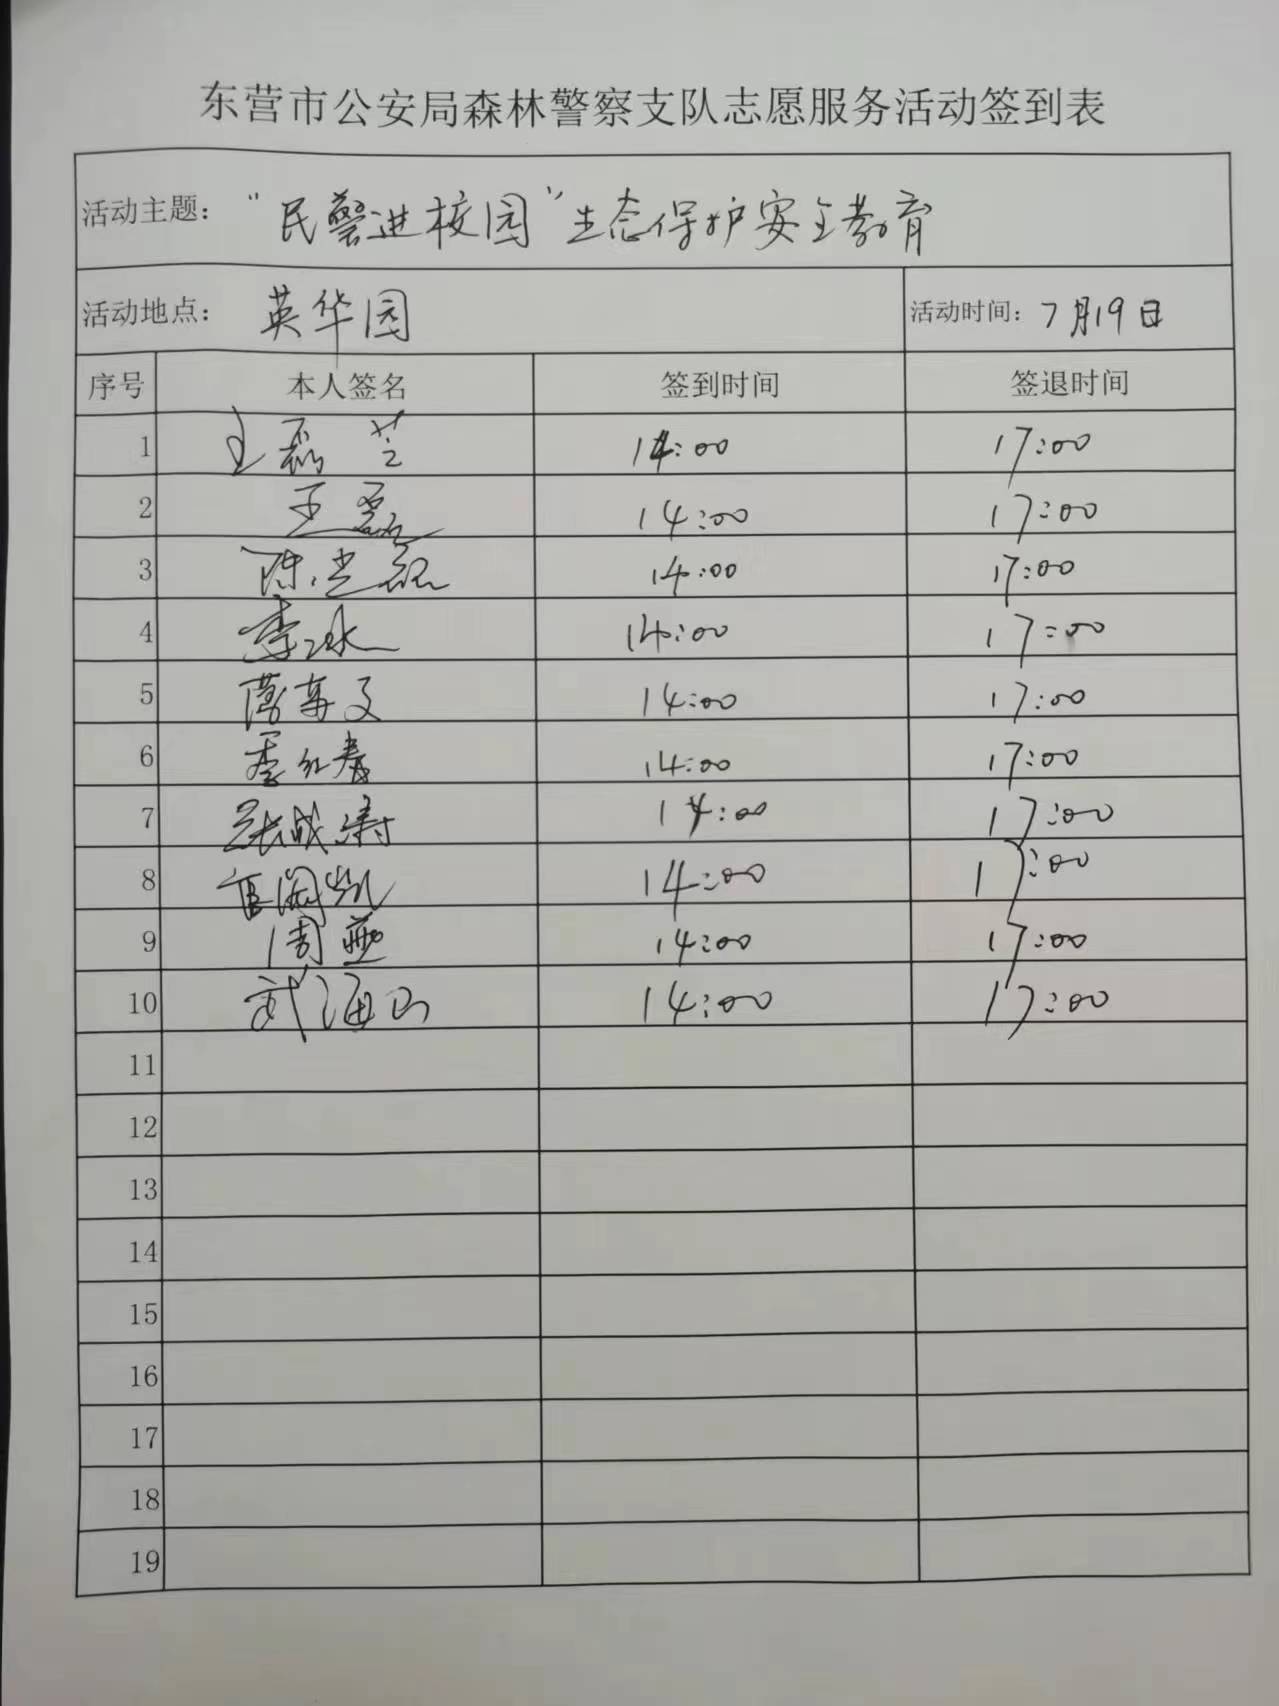 东营市公安局森林警察支队志愿服务活动签到表
活动主题: “民警进校园”生态保护安全教育
活动地点: 英华园 活动时间: 7月19日
序号 本人签名 签到时间 签退时间
1 王磊 14:00 17:00
2 王磊 14:00 17:00
3 陈 14:00 17:00
4 李冰 14:00 17:00
5 14:00 17:00
6 李红春 14:00 17:00
7 张成涛 14:00 17:00
8 14:00 17:00
9 周燕 14:00 17:00
10 武海山 14:00 17:00
11
12
13
14
15
16
17
18
19